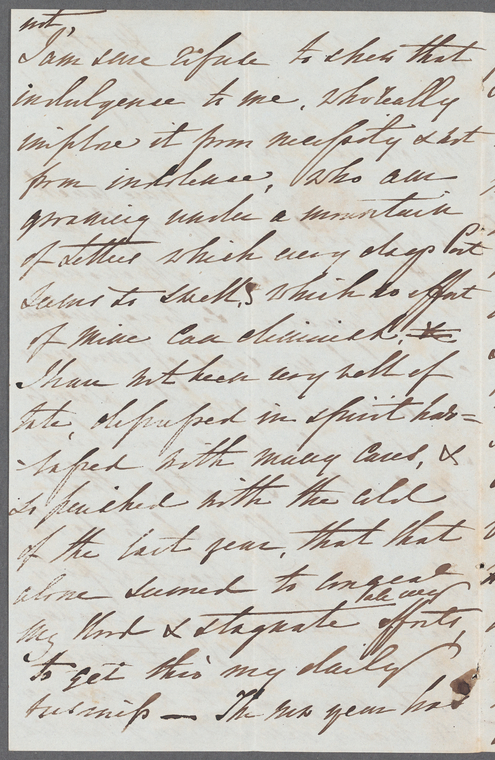 not,
I am sure refuse to shew that
indulgence to me, who really
implore it from necessity & not
from indolence, who am
groaning under a mountain
of Letters which every days Post
seems to swell, & which no effort
of mine can diminish.
I have not been very well of
late, depressed in spirit har=
-rassed with many Cares, &
so pinched with the cold
of the last year, that that
alone seemed to congeal
my blood & stagnate all my efforts,
to get thro my daily
business — The new year has